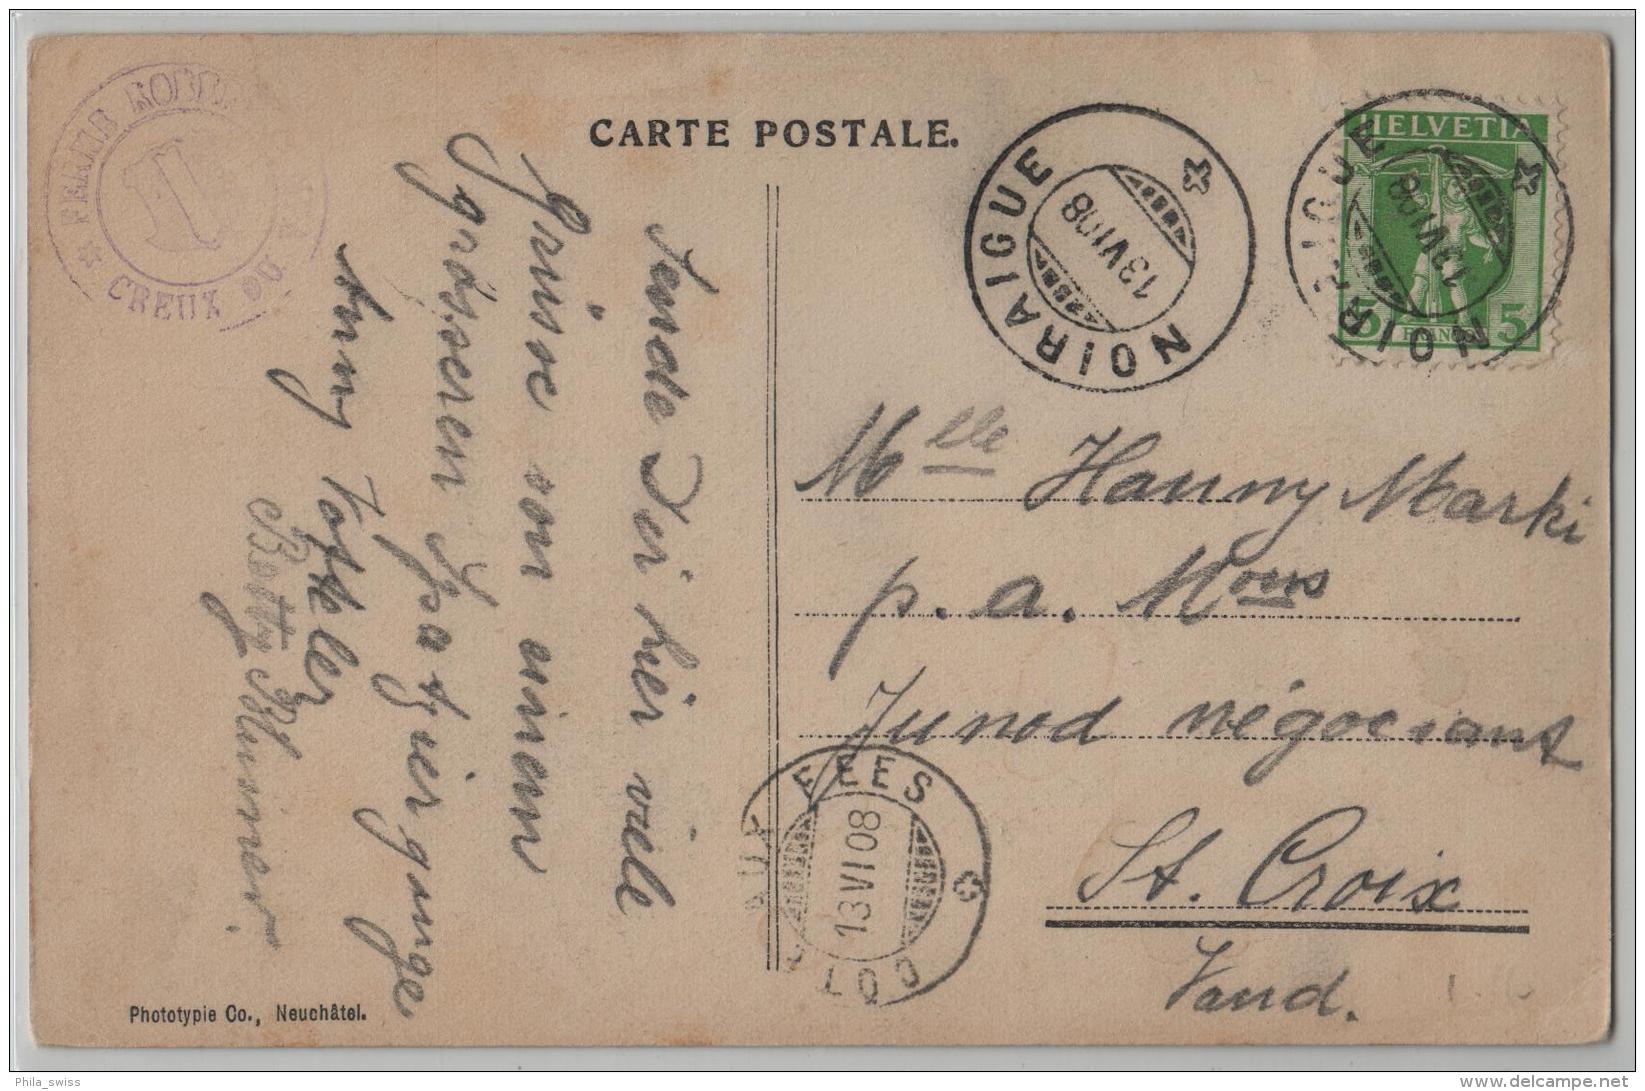 FERME ROBERT
CREUX DU
CARTE POSTALE.
NOIRAIGUE
13 VI 08
NOIRAIGUE
13 VI 08
HELVETIA
5 5
Sende Dir hier viele
Grüsse von einem
grösseren Spatziergange
Anny
Betty
Mlle Hanny Marki
p. a. Mons
Junod négociant
St. Croix
Vaud.
COTE AUX FEES
13 VI 08
Phototypie Co., Neuchâtel.
Phila_swiss
www.delcampe.net